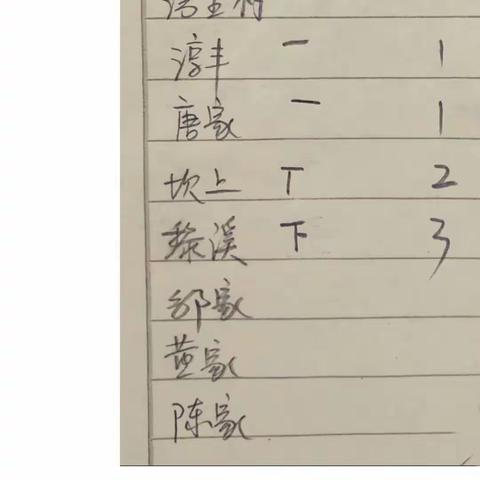 淳丰 一 1
唐家 一 1
坎上 丅 2
黎溪 下 3
邹家
黄家
陈家